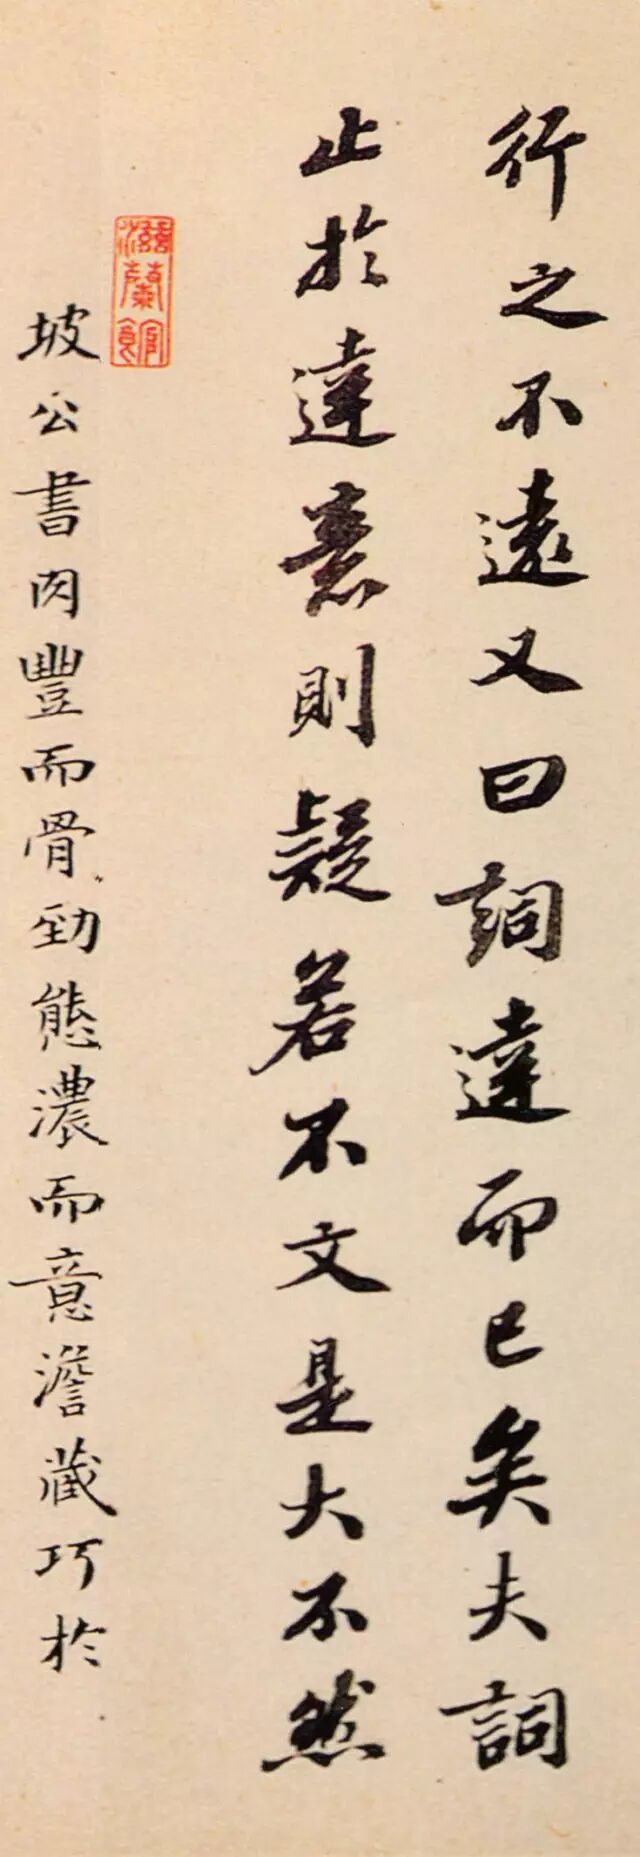 行之不遠又曰詞達而已矣夫詞
止於達意則疑若不文是大不然
滋蘭館
坡公書肉豐而骨勁態濃而意澹藏巧於